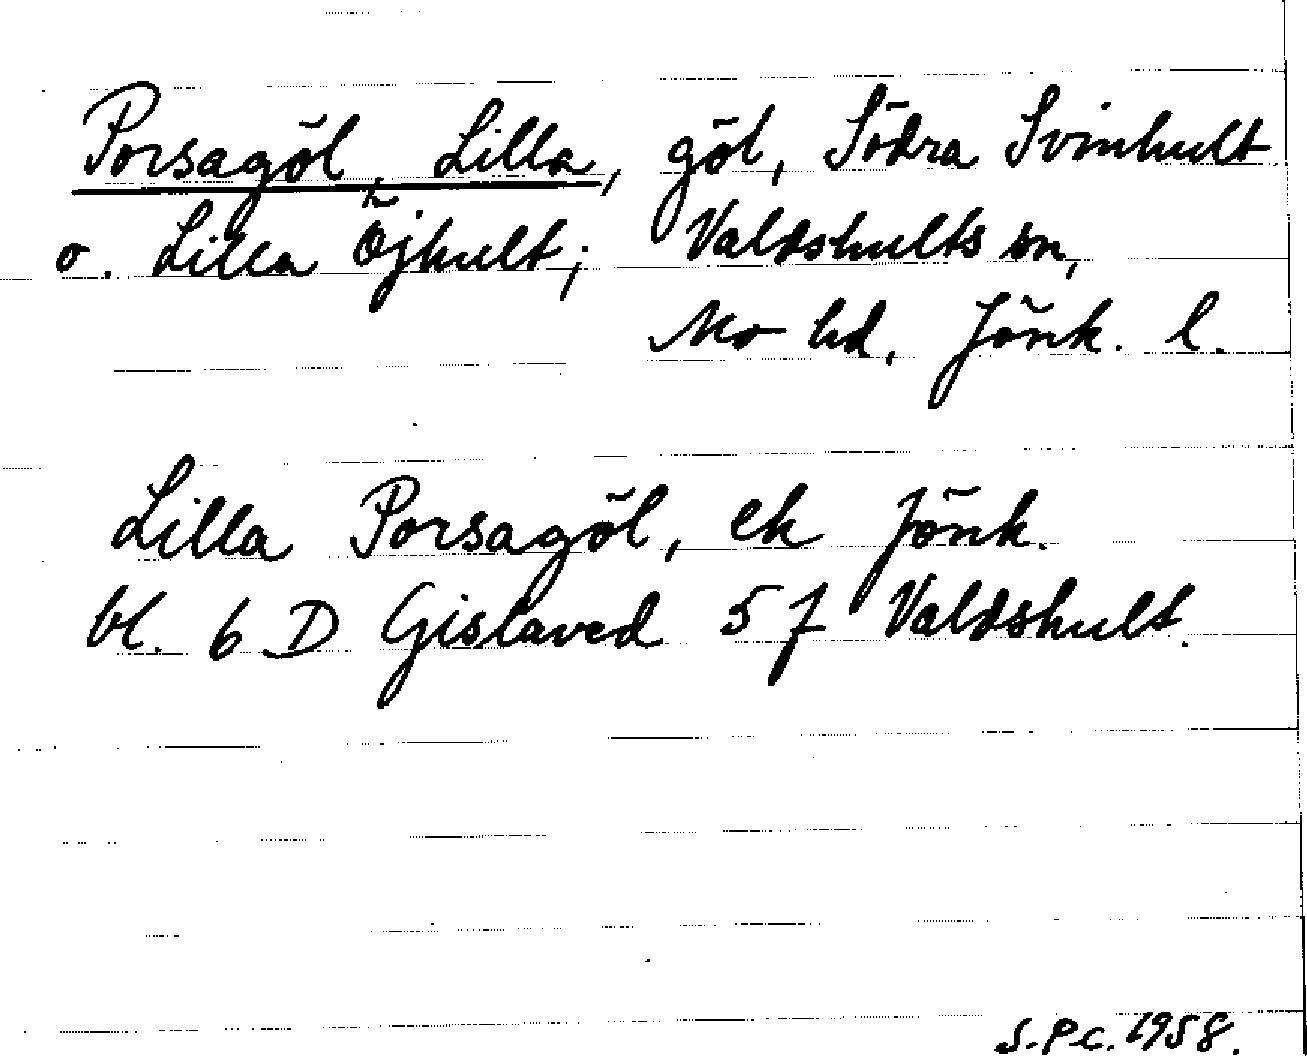 Porsagöl, Lilla, göl, Södra Svinhult
o. Lilla Öjhult; Valdshults sn,
Mo hd, Jönk. l.
Lilla Porsagöl, ek Jönk.
bl. 6 D Gislaved 5 f Valdshult.
S.P.C. 1958.